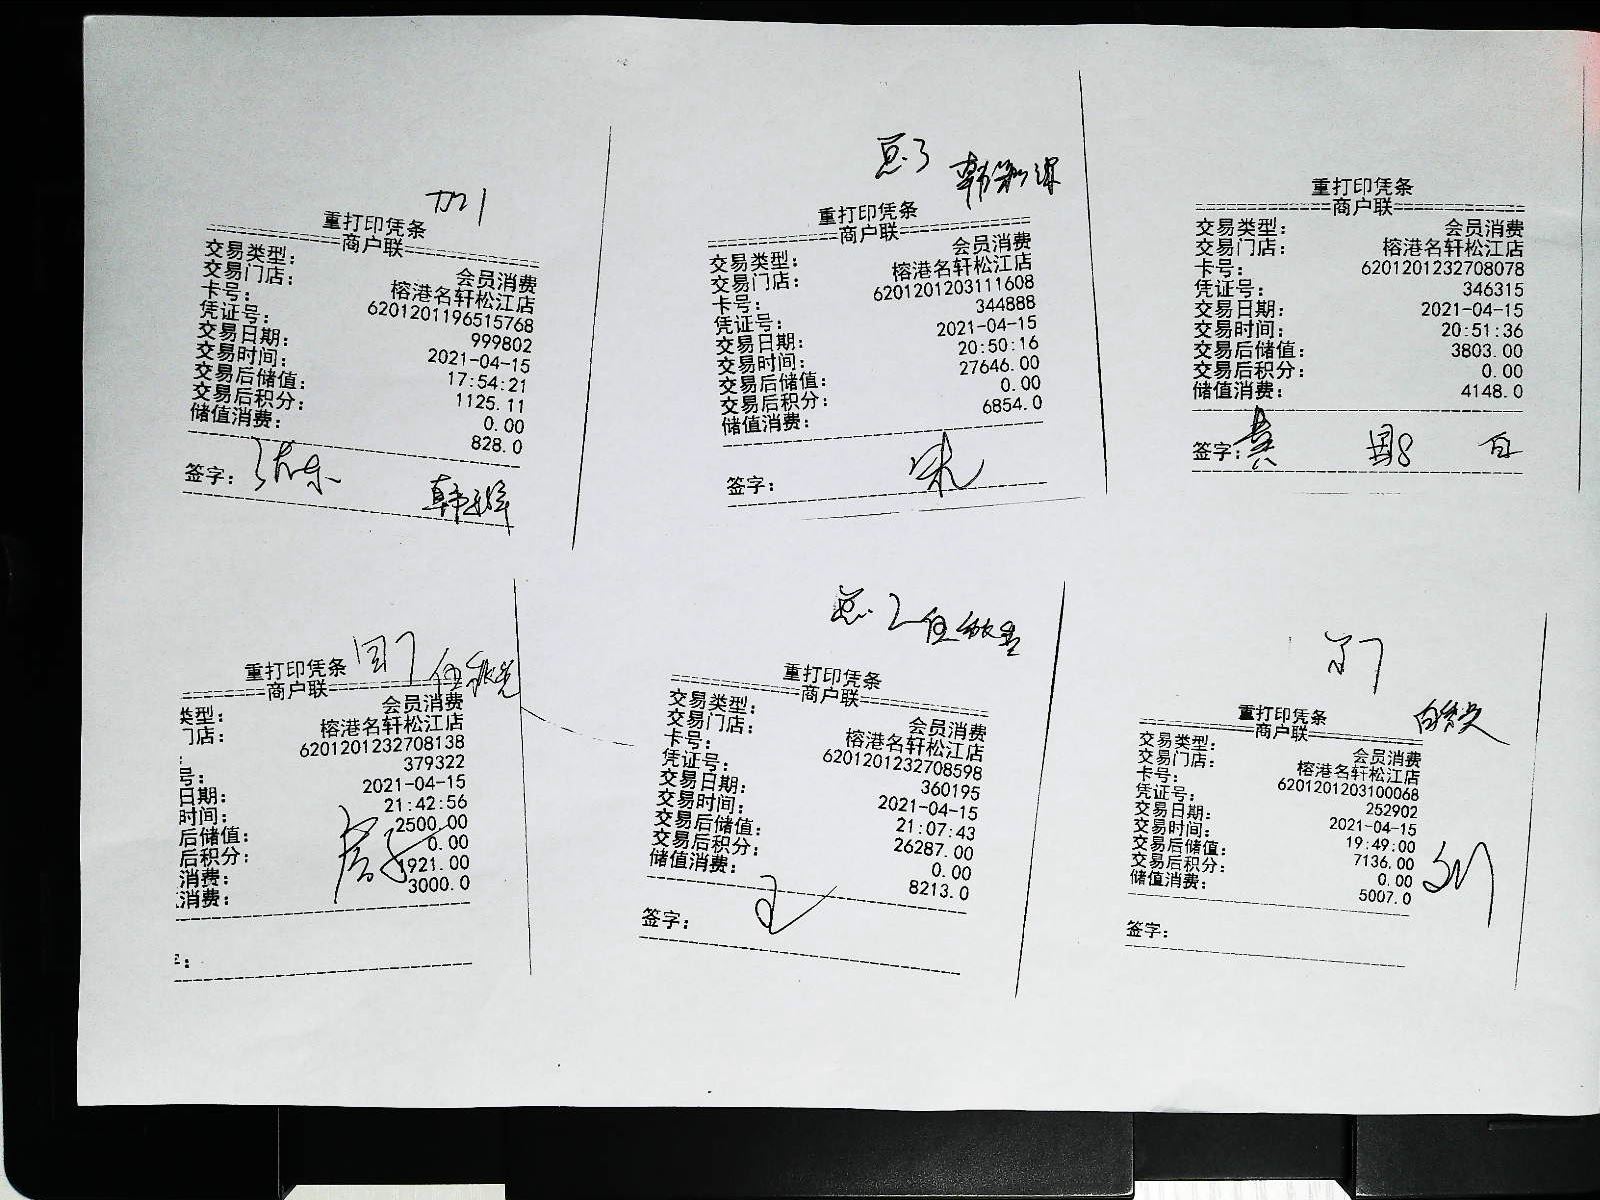 重打印凭条
商户联
交易类型： 会员消费
交易门店： 榕港名轩松江店
卡号： 6201201196515768
凭证号： 999802
交易日期： 2021-04-15
交易时间： 17:54:21
交易后储值： 1125.11
交易后积分： 0.00
储值消费： 828.0
签字：
重打印凭条
商户联
交易类型： 会员消费
交易门店： 榕港名轩松江店
卡号： 6201201203111608
凭证号： 344888
交易日期： 2021-04-15
交易时间： 20:50:16
交易后储值： 27646.00
交易后积分： 0.00
储值消费： 6854.0
签字：
重打印凭条
商户联
交易类型： 会员消费
交易门店： 榕港名轩松江店
卡号： 6201201232708078
凭证号： 346315
交易日期： 2021-04-15
交易时间： 20:51:36
交易后储值： 3803.00
交易后积分： 0.00
储值消费： 4148.0
签字：
重打印凭条
商户联
类型： 会员消费
门店： 榕港名轩松江店
6201201232708138
号： 379322
日期： 2021-04-15
时间： 21:42:56
后储值： 2500.00
后积分： 0.00
消费： 1921.00
消费： 3000.0
重打印凭条
商户联
交易类型： 会员消费
交易门店： 榕港名轩松江店
卡号： 6201201232708598
凭证号： 360195
交易日期： 2021-04-15
交易时间： 21:07:43
交易后储值： 26287.00
交易后积分： 0.00
储值消费： 8213.0
签字：
重打印凭条
商户联
交易类型： 会员消费
交易门店： 榕港名轩松江店
卡号： 6201201203100068
凭证号： 252902
交易日期： 2021-04-15
交易时间： 19:49:00
交易后储值： 7136.00
交易后积分： 0.00
储值消费： 5007.0
签字：